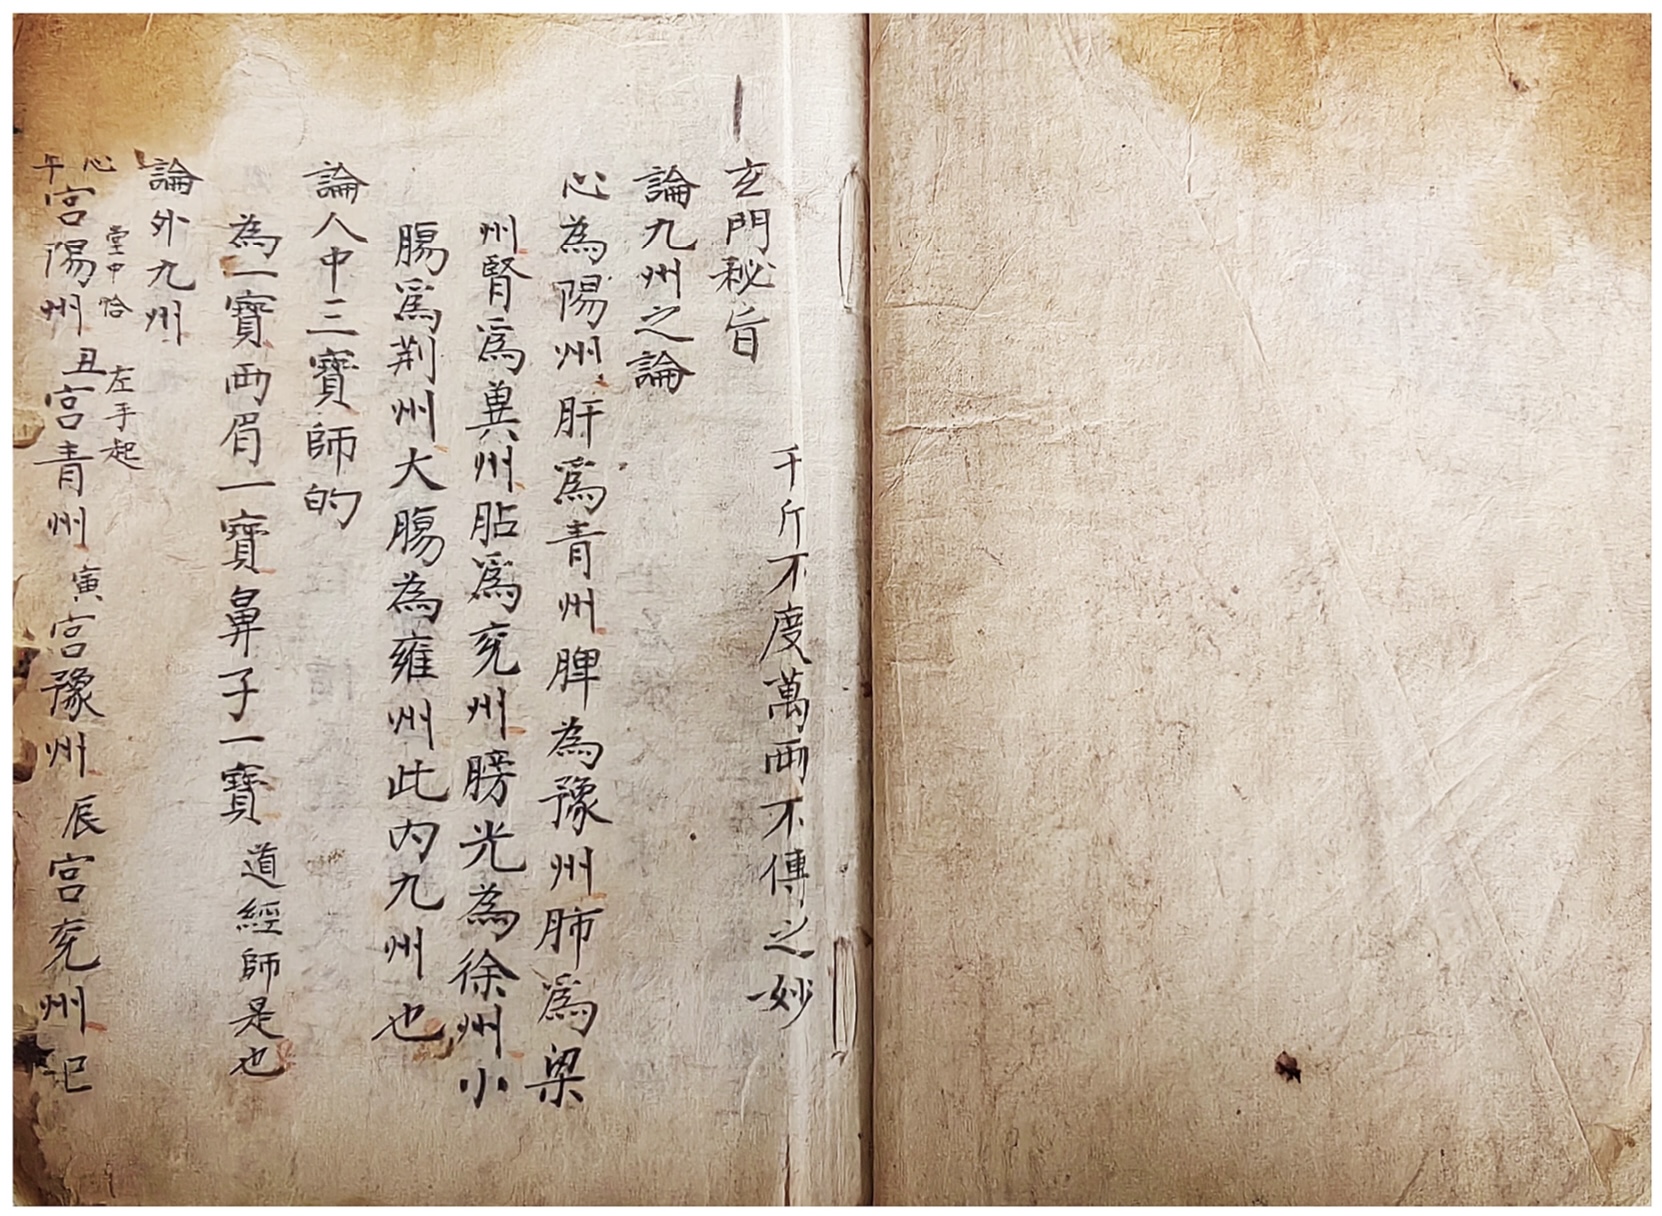 千斤不度萬両不傳之妙
玄門秘旨
論九州之論
心為陽州肝爲青州脾為豫州肺爲梁
州腎爲兾州胋爲兖州膀光為徐州小
腸爲荆州大腸為雍州此内九州也
論人中三寶師的
為一寶両眉一寶鼻子一寶道經師是也
論外九州
心堂中恰 左手起
午宮陽州丑宮青州寅宮豫州辰宮兖州巳